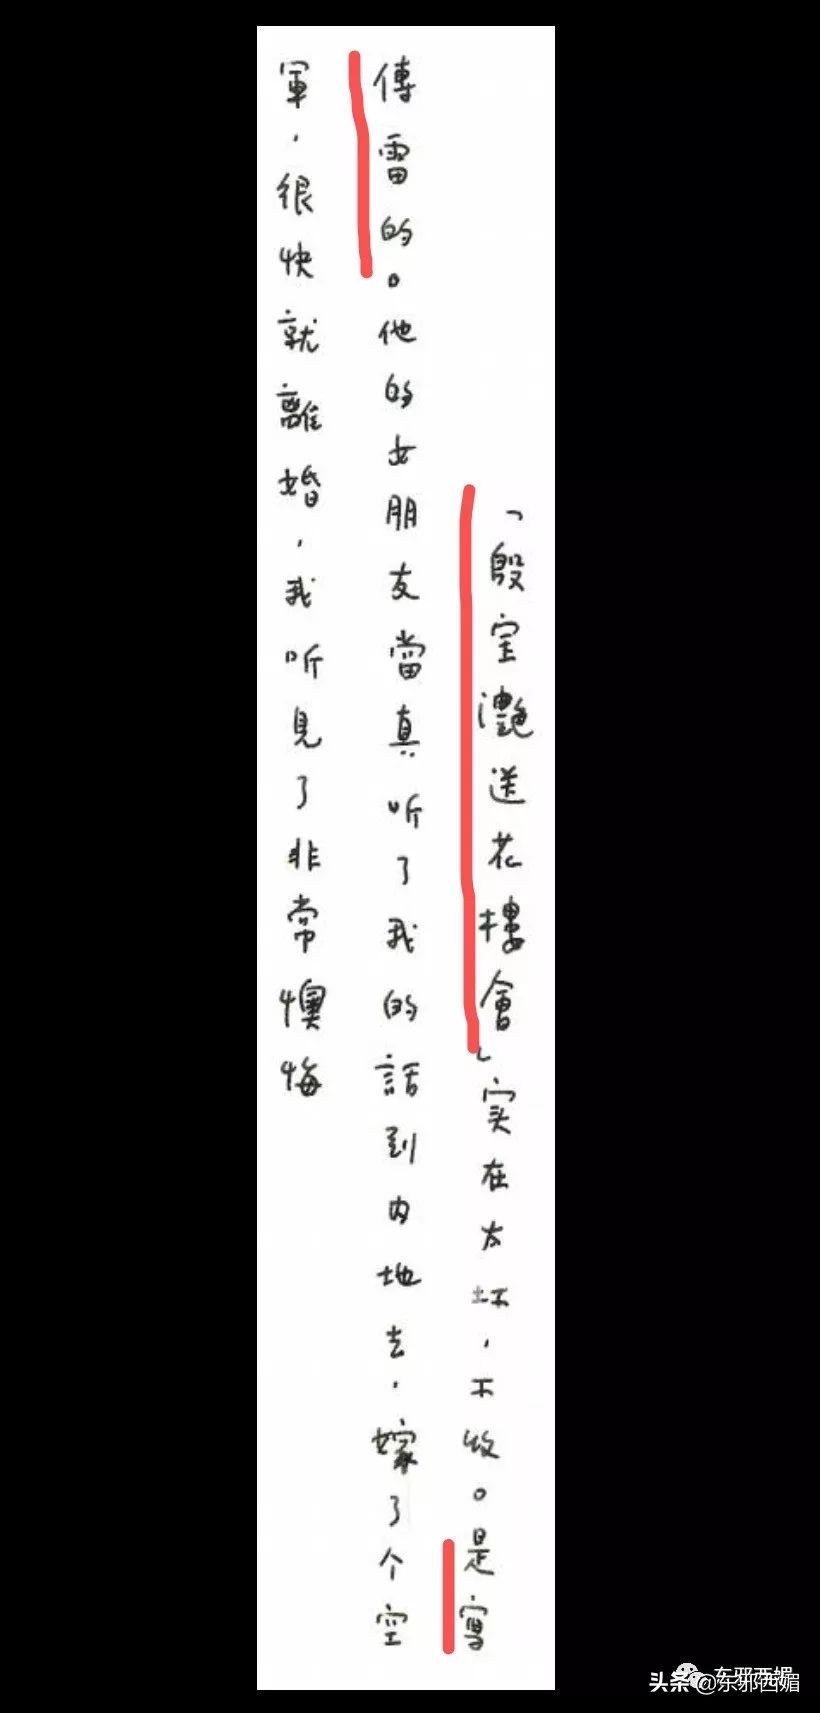 「殷宝灔送花樓會」实在太坏，不收。是寫
傅雷的。他的女朋友當真听了我的話到内地去，嫁了个空
軍，很快就離婚，我听見了非常懊悔
头条@东邪西媚
东邪西媚